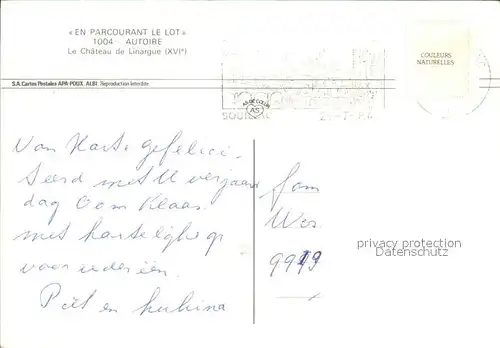 « EN PARCOURANT LE LOT »
1004 - AUTOIRE
Le Château de Linargue (XVIᵉ)
COULEURS
NATURELLES
S.A. Cartes Postales APA-POUX, ALBI Reproduction interdite
AS DE CŒUR
AS
Van Harte gefelici-
teerd met U verjaar
dag Oom Klaas.
met hartelijke gr
voor iedereen.
Piet en
Fam
Wes
privacy protection
Datenschutz